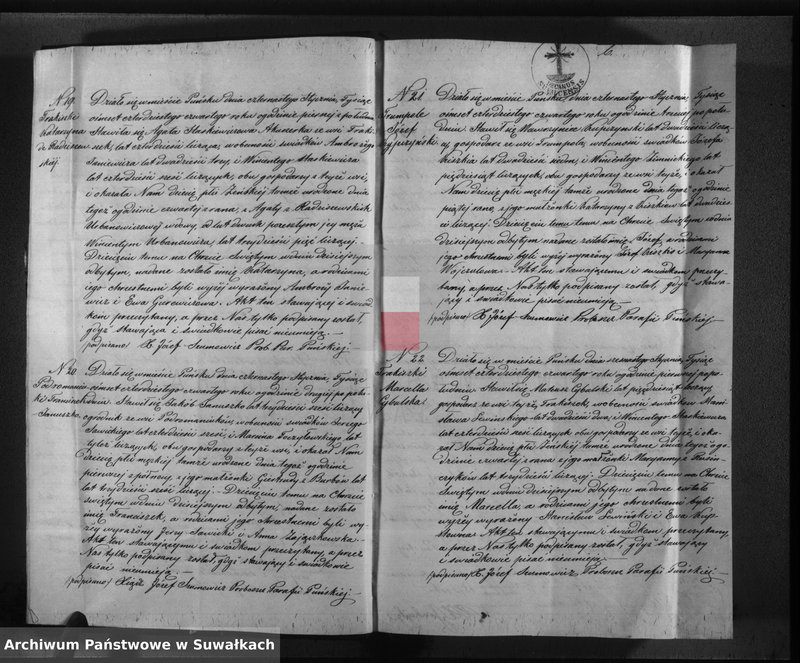 N 19.
Trakiszki
Katarzyna
Działo się w mieście Puńsku dnia czternastego Stycznia, Tysiąc
ośmset czterdziestego czwartego roku o godzinie pierwszej po południu
Stawiła się Agata Staskiewiczowa Akuszerka ze wsi Traki-
szek, lat czterdzieści licząca, w obecności świadków Ambrożego
Janiewicza lat dwadzieścia trzy, i Wincentego Staskiewicza
lat czterdzieści sześć liczących, obu gospodarzy z tejże wsi,
i okazała Nam dziecię płci żeńskiej tamże urodzone dnia
tegoż o godzinie czwartej z rana, z Agaty z Radziszewskich
Urbanowiczowej wdowy,
Wincentym Urbanowiczu lat trzydzieści pięć liczącej.
Dziecięciu temu na Chrzcie Świętym w dniu dzisiejszym
odbytym, nadane zostało imię Katarzyna, a rodzicami
jego chrzestnemi byli wyżej wyrażony Ambroży Janie-
wicz i Ewa Gurewiczowa. Akt ten stawającej i świad-
kom przeczytany, a przez Nas tylko podpisany został,
gdyż stawająca i świadkowie pisać nieumieją.
(podpisano) X. Józef Szumowicz Prob. Par. Puńskiej
N 20.
Franciszek
Januszko.
Działo się w mieście Puńsku dnia czternastego Stycznia, Tysiąc
ośmset czterdziestego czwartego roku o godzinie drugiej po połu-
dniu Stawił się Jakób Januszko lat trzydzieści sześć liczący
ogrodnik ze wsi w obecności świadków Jerzego
Sawickiego lat czterdzieści sześć, i Marcina lat
liczących, obu gospodarzy z tejże wsi, i okazał Nam
dziecię płci męzkiej tamże urodzone dnia tegoż o godzinie
pierwszej z północy, z jego małżonki Gertrudy z
lat trzydzieści sześć liczącej. Dziecięciu temu na Chrzcie
świętym w dniu dzisiejszym odbytym, nadane zostało
imię Franciszek, a rodzicami jego chrzestnemi byli wy-
żej wyrażony Jerzy Sawicki i Anna Zajączkowska.
Akt ten stawającemu i świadkom przeczytany, a przez
Nas tylko podpisany został, gdyż stawający i świadkowie
pisać nieumieją.
(podpisano) Xiądz Józef Szumowicz Proboszcz Parafii Puńskiej
6.
N 21
Trumpole
Józef
Działo się w mieście Puńsku dnia czternastego Stycznia, Tysiąc
ośmset czterdziestego czwartego roku o godzinie trzeciej po połu-
dniu. Stawił się Wawrzyniec lat dwadzieścia liczą-
cy gospodarz ze wsi Trumpola, w obecności świadków Józefa
lat dwadzieścia siedm, i Wincentego lat
pięćdziesiąt liczących, obu gospodarzy ze wsi tejże, i okazał
Nam dziecię płci męzkiej tamże urodzone dnia tegoż o godzinie
piątej rano, z jego małżonki Katarzyny z lat dwadzieś-
cia liczącej. Dziecięciu temu na Chrzcie Świętym w dniu
dzisiejszym odbytym nadane zostało imię Józef, a rodzicami
jego chrzestnemi byli wyżej wyrażony Józef i Maryanna
Akt ten stawającemu i świadkom przeczy-
tany, a przez Nas tylko podpisany został, gdyż stawa-
jący i świadkowie pisać nieumieją.
(podpisano) X. Józef Szumowicz Proboszcz Parafii Puńskiej
N 22
Trakiszki
Marcella
Cybulska.
Działo się w mieście Puńsku dnia Stycznia, Tysiąc
ośmset czterdziestego czwartego roku o godzinie pierwszej po po-
łudniu. Stawił się Mateusz Cybulski lat pięćdziesiąt liczący
gospodarz ze wsi tejże Trakiszek, w obecności świadków Stani-
sława Lewińskiego lat dwadzieścia dwa, i Wincentego Staskiewicza
lat czterdzieści sześć liczących obu gospodarzy ze wsi tejże, i oka-
zał Nam dziecię płci żeńskiej tamże urodzone dnia tegoż o go-
dzinie czwartej z rana z jego małżonki Maryanny z
lat trzydzieści sześć liczącej. Dziecięciu temu na Chrzcie
Świętym w dniu dzisiejszym odbytym nadane zostało
imię Marcella, a rodzicami jego chrzestnemi byli
wyżej wyrażony Stanisław Lewiński i Ewa
Akt ten stawającemu i świadkom przeczytany,
a przez Nas tylko podpisany został, gdyż stawający
i świadkowie pisać nieumieją.
(podpisano) X. Józef Szumowicz Proboszcz Parafii Puńskiej
Archiwum Państwowe w Suwałkach